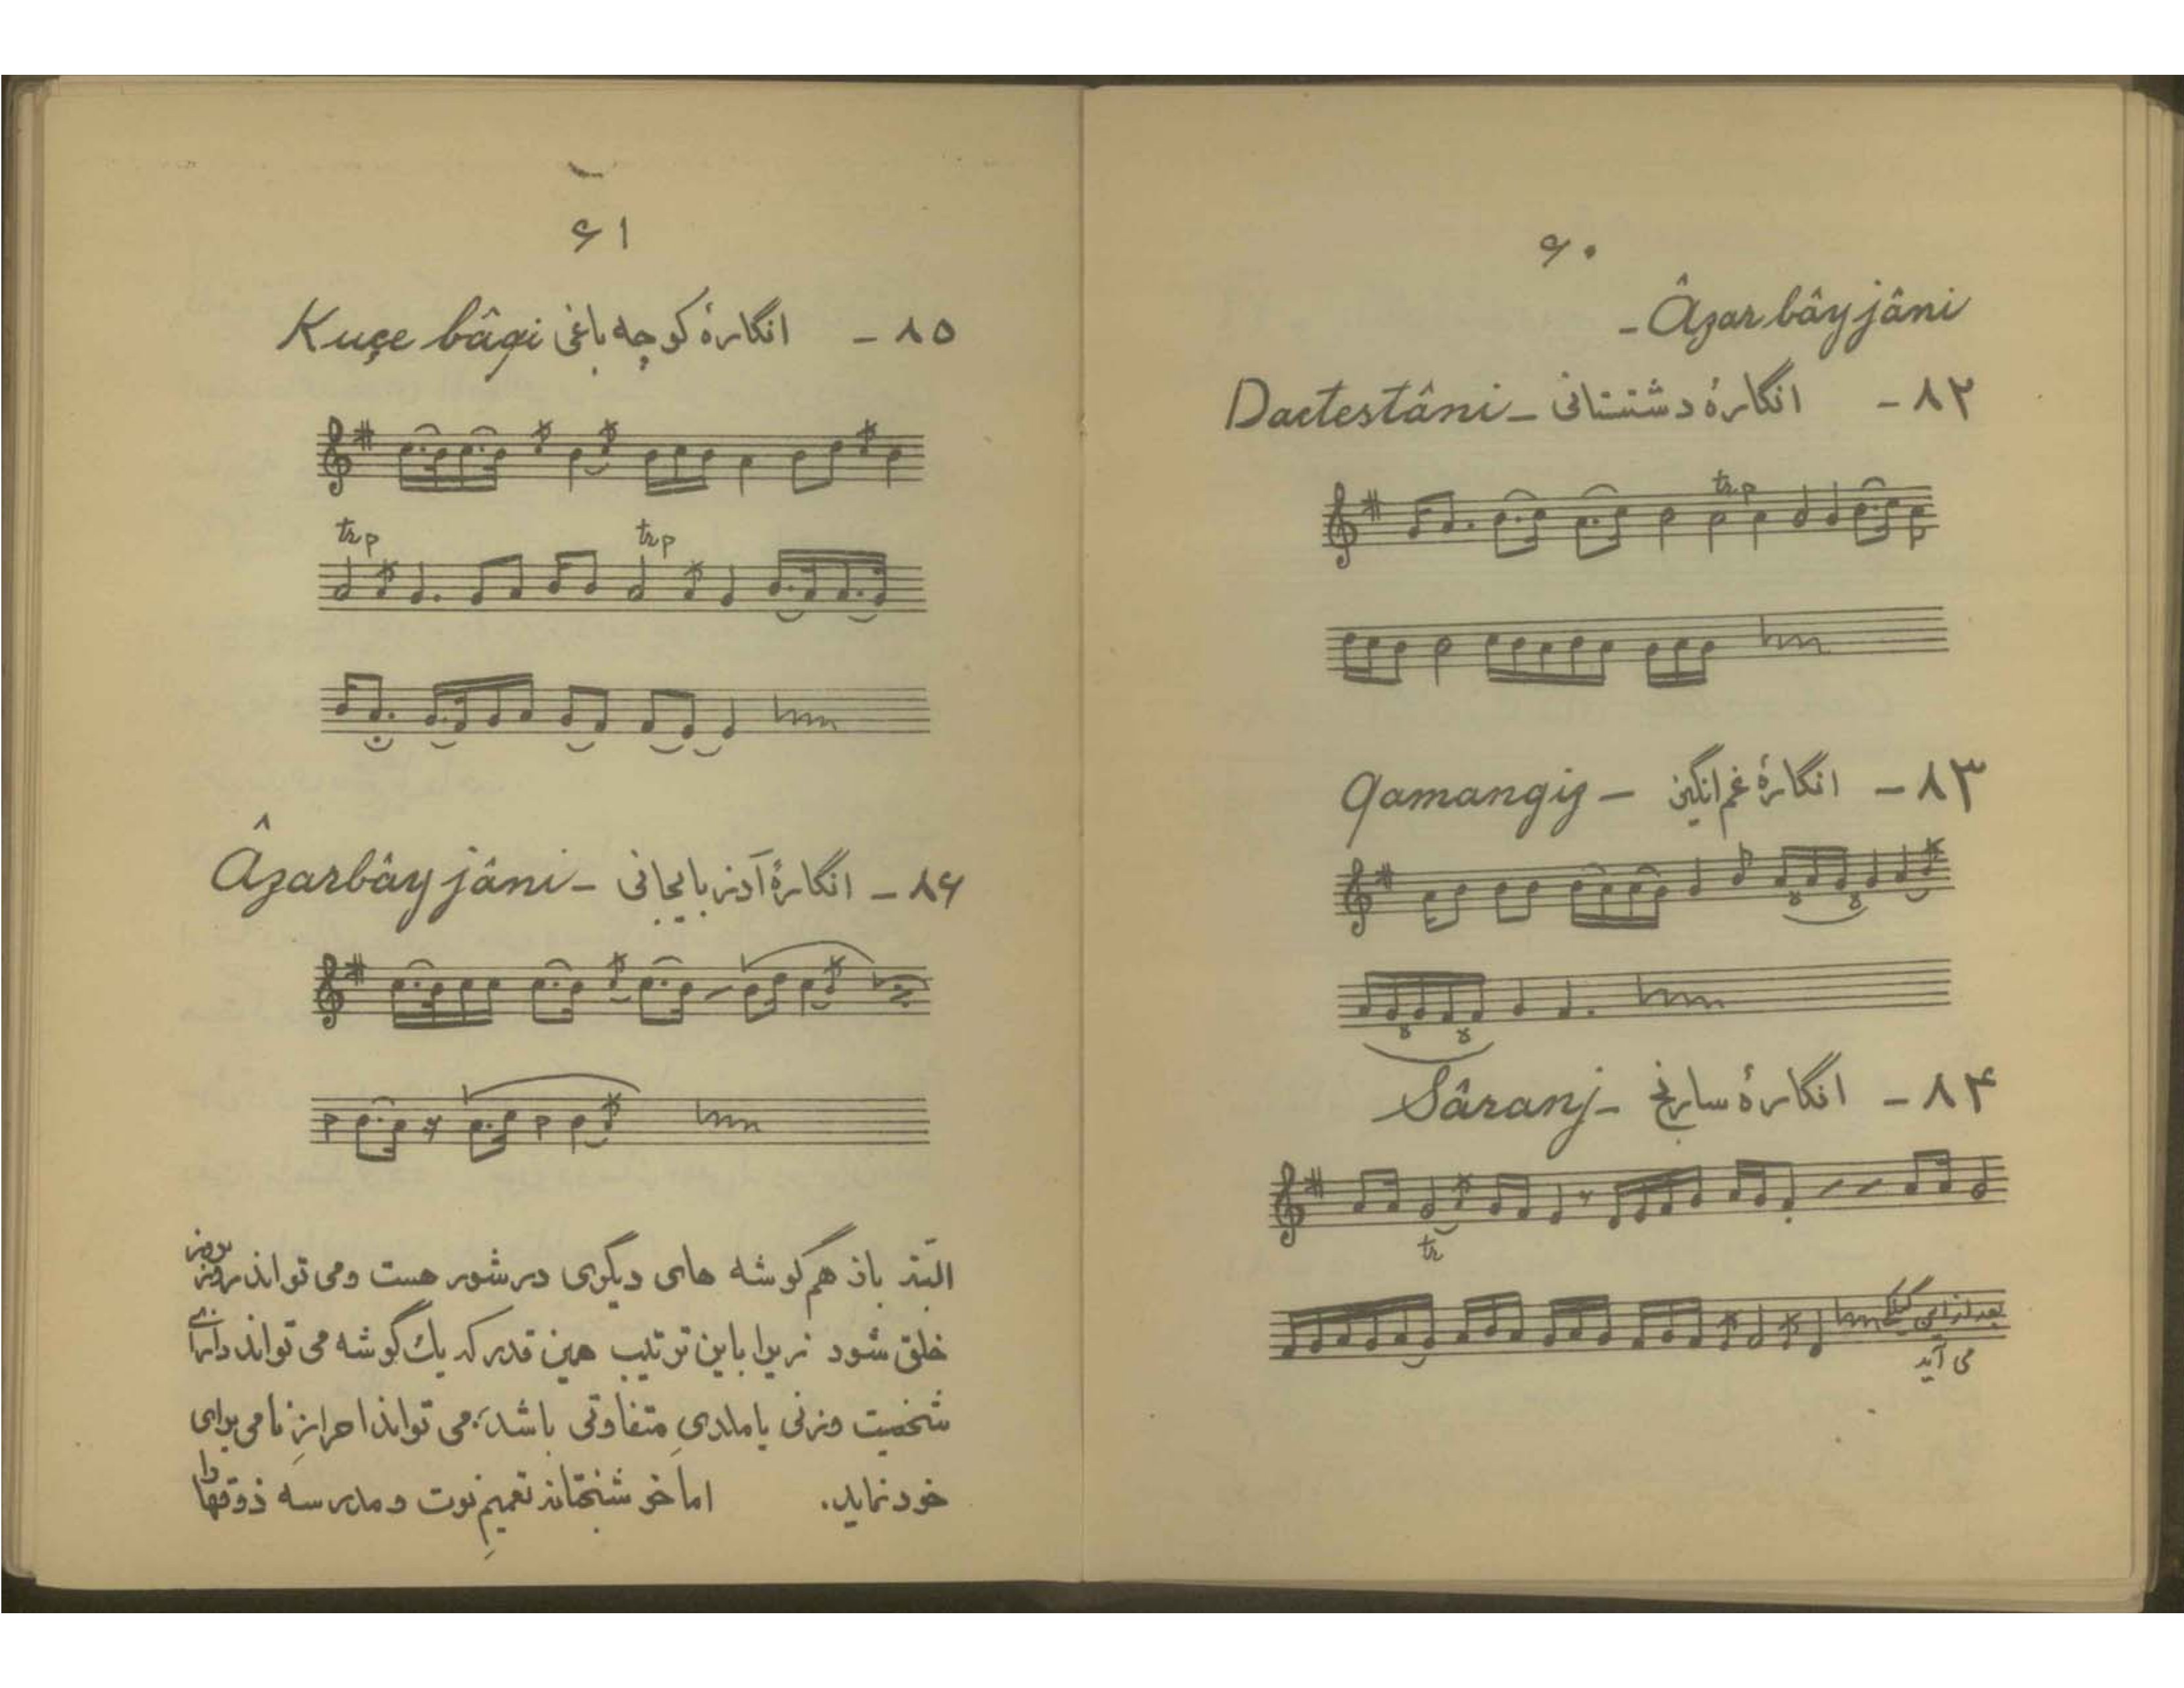 ۶۰
- Âzarbâyjâni
۸۲ - انگارهٔ دشتستانی - Dactestâni
trp
۸۳ - انگارهٔ غم‌انگیز - Qamangiz
۸۴ - انگارهٔ سارنج - Sâranj
tr
بعد از این گیلکی
می آید
۶۱
۸۵ - انگارهٔ کوچه باغی Kuçe bâqi
trp trp
۸۶ - انگارهٔ آذربایجانی - Âzarbâyjâni
البته باز هم گوشه های دیگری در شور هست و می تواند روزبروز
خلق شود زیرا باین ترتیب همین قدر که یک گوشه می تواند دارای
شخصیت وزنی یا ملدیِ متفاوتی باشد؛ می تواند احرازِ نامی برای
خود نماید. اما خوشبختانه تعمیمِ نوت و مدرسه ذوقها را